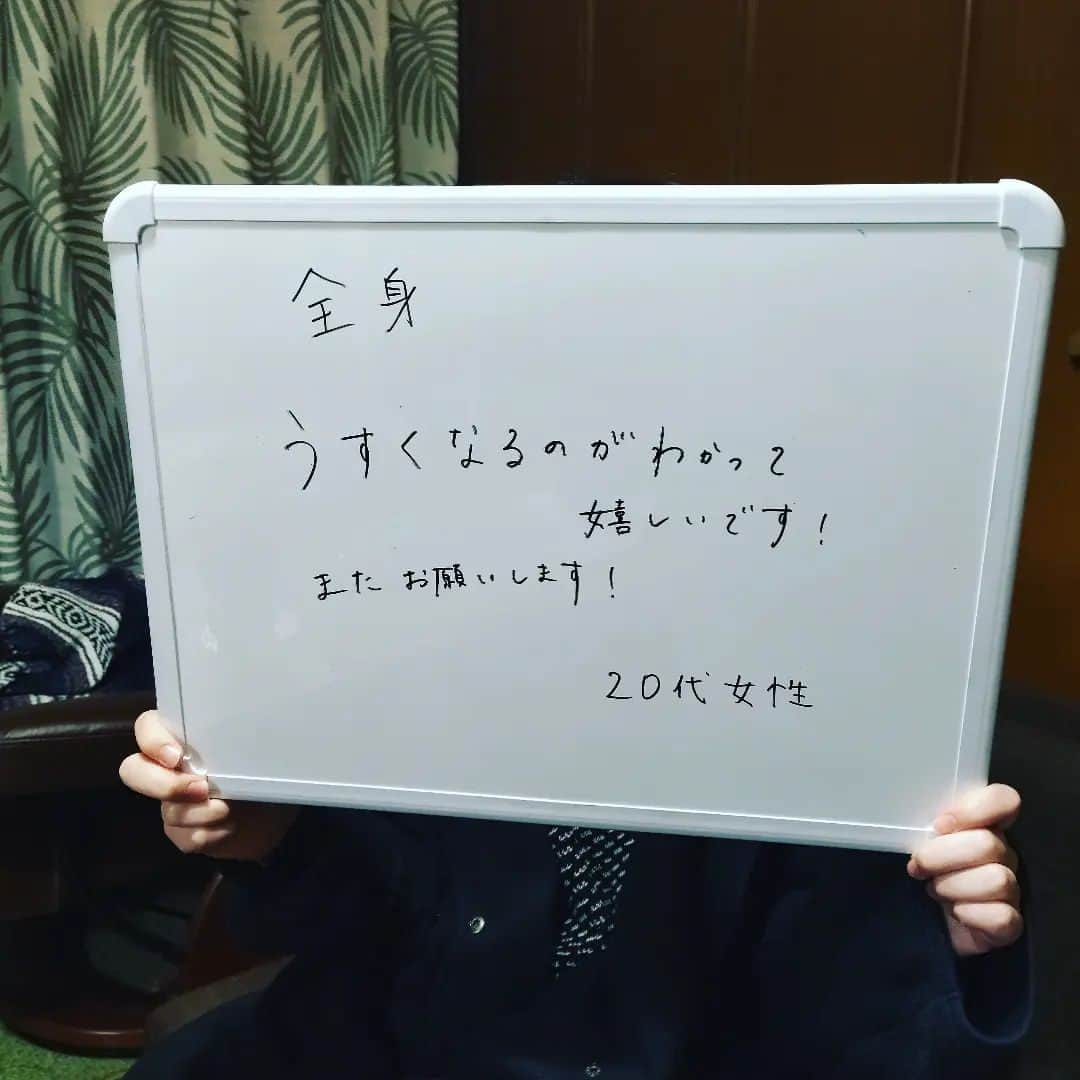 全身
うすくなるのがわかって
嬉しいです!
またお願いします!
20代女性